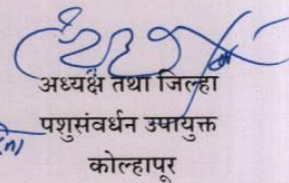 अध्यक्ष तथा जिल्हा
पशुसंवर्धन उपायुक्त
कोल्हापूर